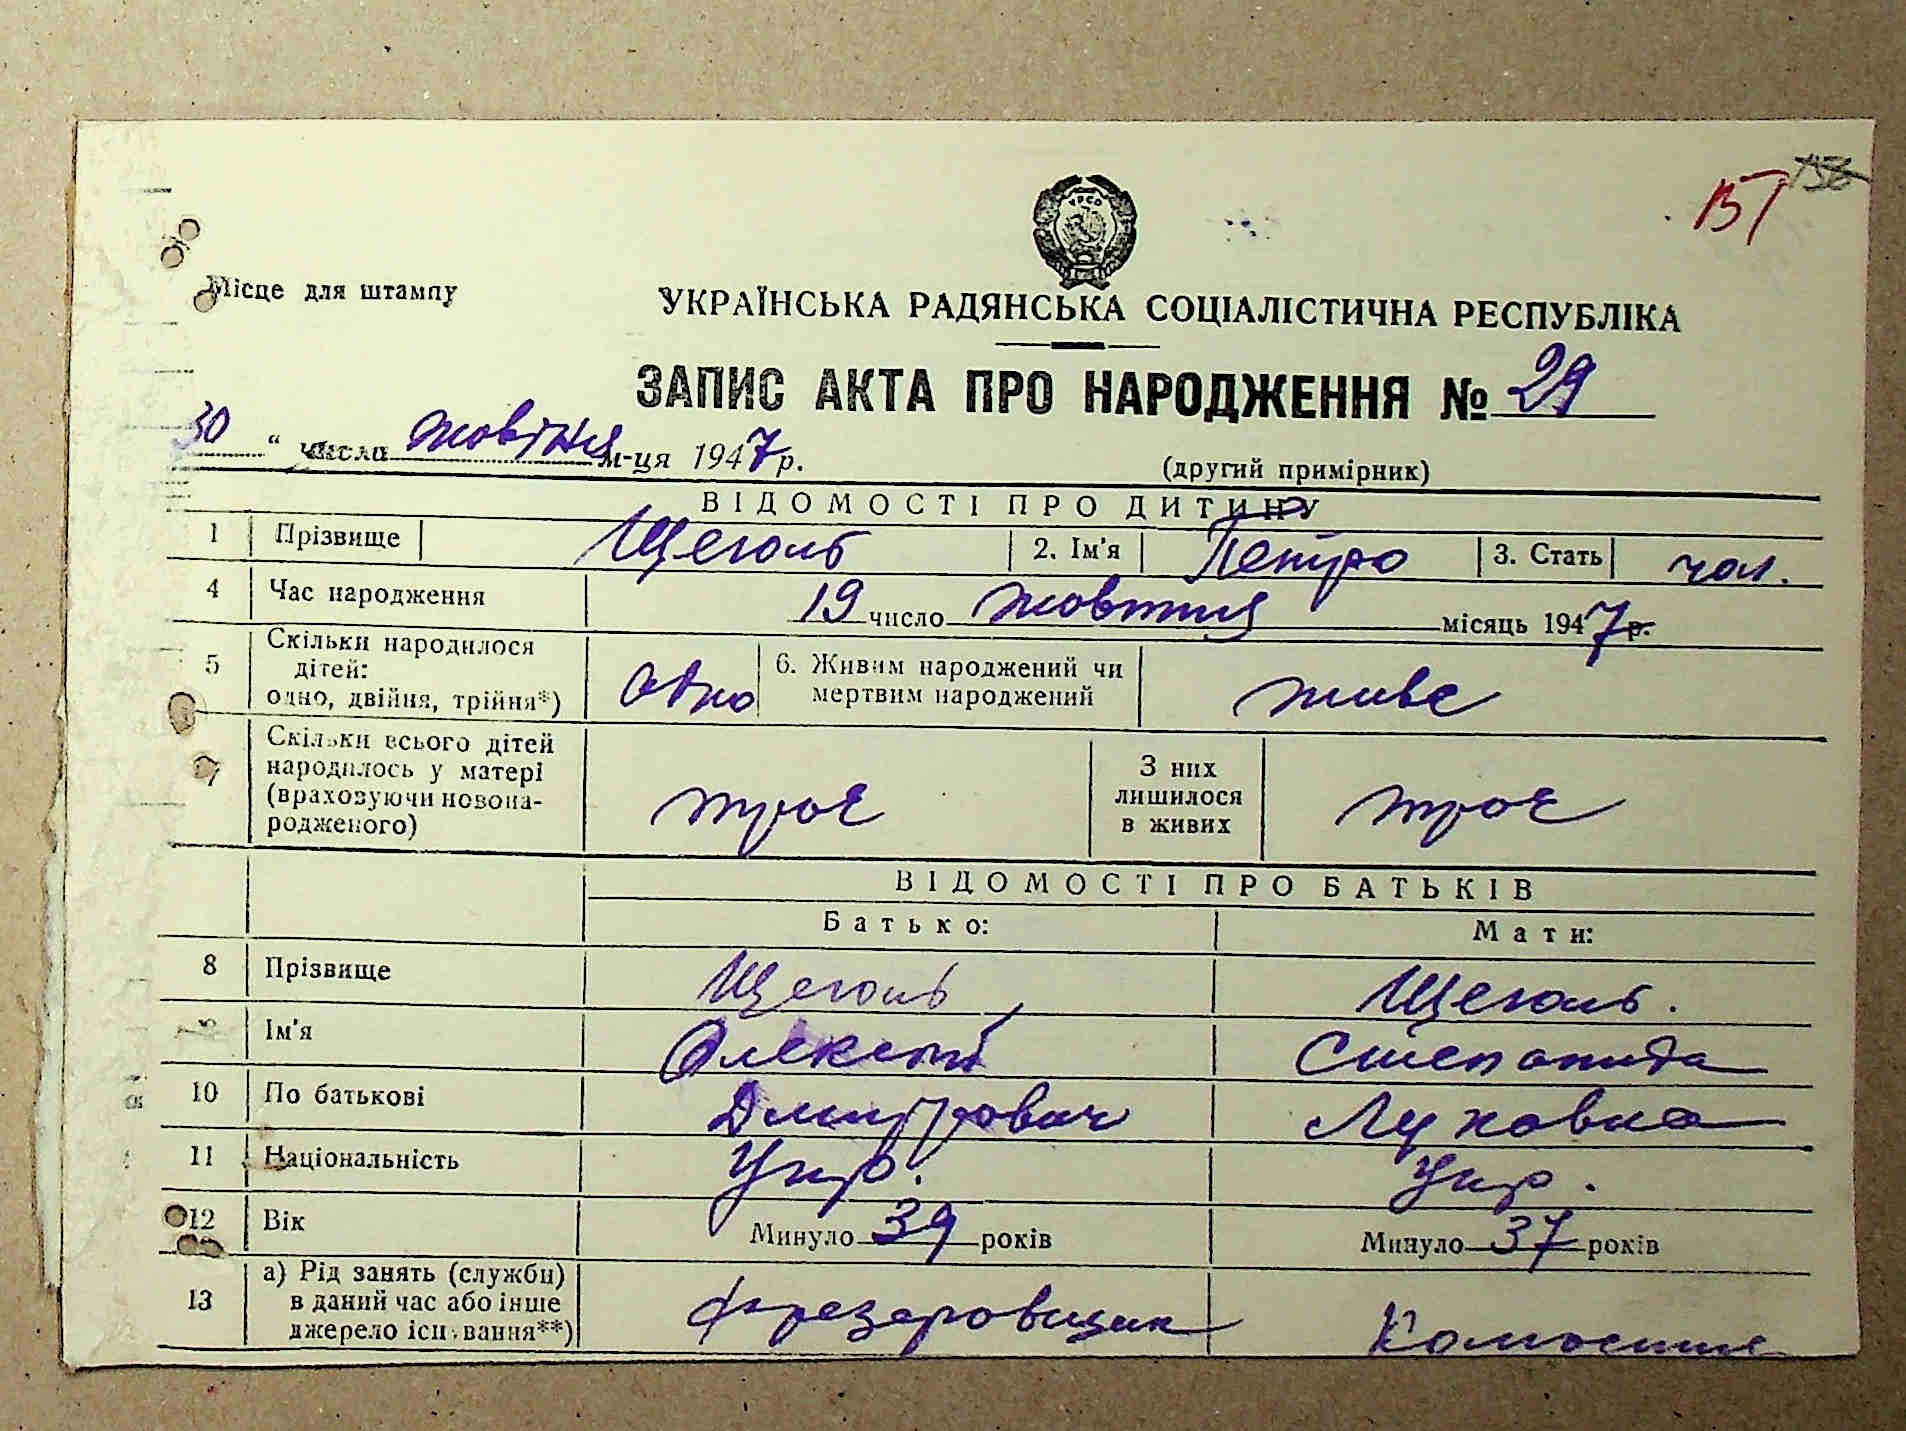 157 156
УРСР
Місце для штампу
УКРАЇНСЬКА РАДЯНСЬКА СОЦІАЛІСТИЧНА РЕСПУБЛІКА
ЗАПИС АКТА ПРО НАРОДЖЕННЯ № 29
30 " числа жовтня м-ця 1947 р. (другий примірник)
ВІДОМОСТІ ПРО ДИТИНУ
1 Прізвище Щеголь 2. Ім'я Петро 3. Стать чол.
4 Час народження 19 число жовтня місяць 1947 р.
5 Скільки народилося дітей: одно, двійня, трійня*) одно 6. Живим народжений чи мертвим народжений живе
7 Скільки всього дітей народилось у матері (враховуючи новонародженого) троє З них лишилося в живих троє
ВІДОМОСТІ ПРО БАТЬКІВ
Батько: Мати:
8 Прізвище Щеголь Щеголь.
9 Ім'я Олексій Степанида
10 По батькові Дмитрович Луковна
11 Національність Укр. Укр.
12 Вік Минуло 39 років Минуло 37 років
13 а) Рід занять (служби) в даний час або інше джерело існування**) фрезеровщик